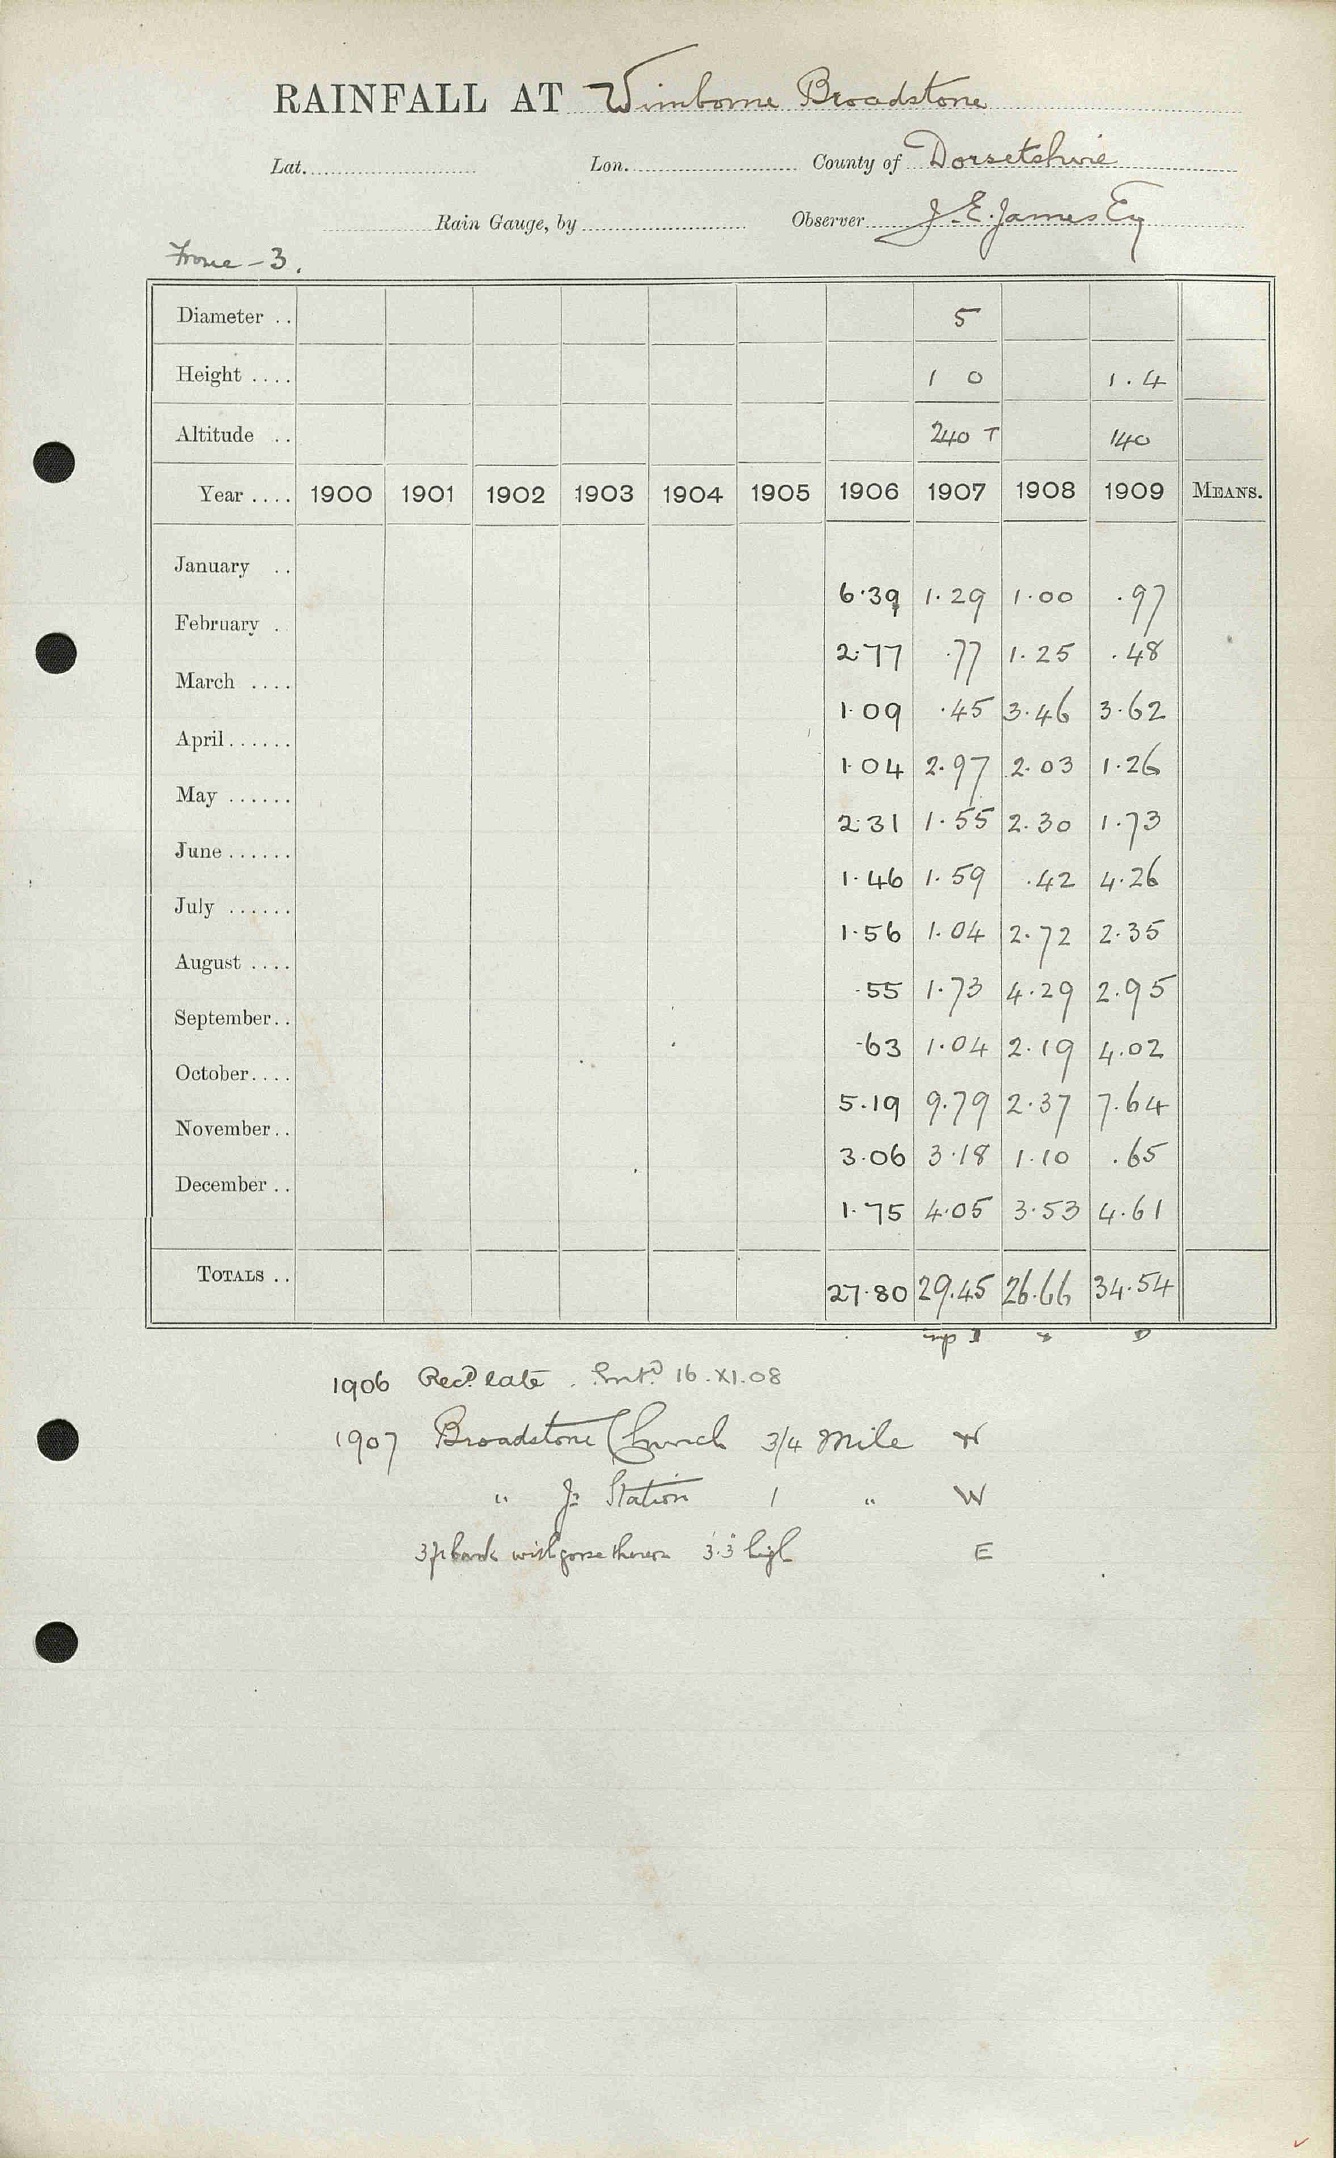 RAINFALL AT Wimborne Broadstone
Lat. Lon. County of Dorsetshire
Rain Gauge, by Observer J. E. James Esq
Frome - 3.
Diameter .. 5
Height .... 1 0 1.4
Altitude .. 240 T 140
Year .... 1900 1901 1902 1903 1904 1905 1906 1907 1908 1909 MEANS.
January .. 6.39 1.29 1.00 .97
February . 2.77 .77 1.25 .48
March .... 1.09 .45 3.46 3.62
April...... 1.04 2.97 2.03 1.26
May ...... 2.31 1.55 2.30 1.73
June...... 1.46 1.59 .42 4.26
July ...... 1.56 1.04 2.72 2.35
August .... .55 1.73 4.29 2.95
September.. .63 1.04 2.19 4.02
October.... 5.19 9.79 2.37 7.64
November.. 3.06 3.18 1.10 .65
December .. 1.75 4.05 3.53 4.61
TOTALS .. 27.80 29.45 26.66 34.54
1906 Recd late. Entd 16.XI.08
1907 Broadstone Church 3/4 mile W
" Jn Station 1 " W
3ft bank with gorse thereon 3.3 high E